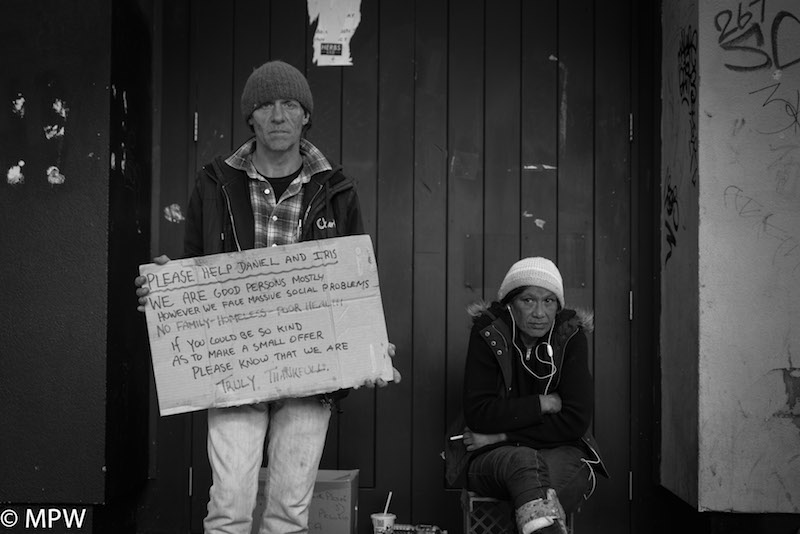 PLEASE HELP DANIEL AND IRIS
WE ARE GOOD PERSONS MOSTLY
HOWEVER WE FACE MASSIVE SOCIAL PROBLEMS
NO FAMILY - HOMELESS - POOR HEALTH!!!
IF YOU COULD BE SO KIND
AS TO MAKE A SMALL OFFER
PLEASE KNOW THAT WE ARE
TRULY, THANKFULL.
HERBS
267
© MPW